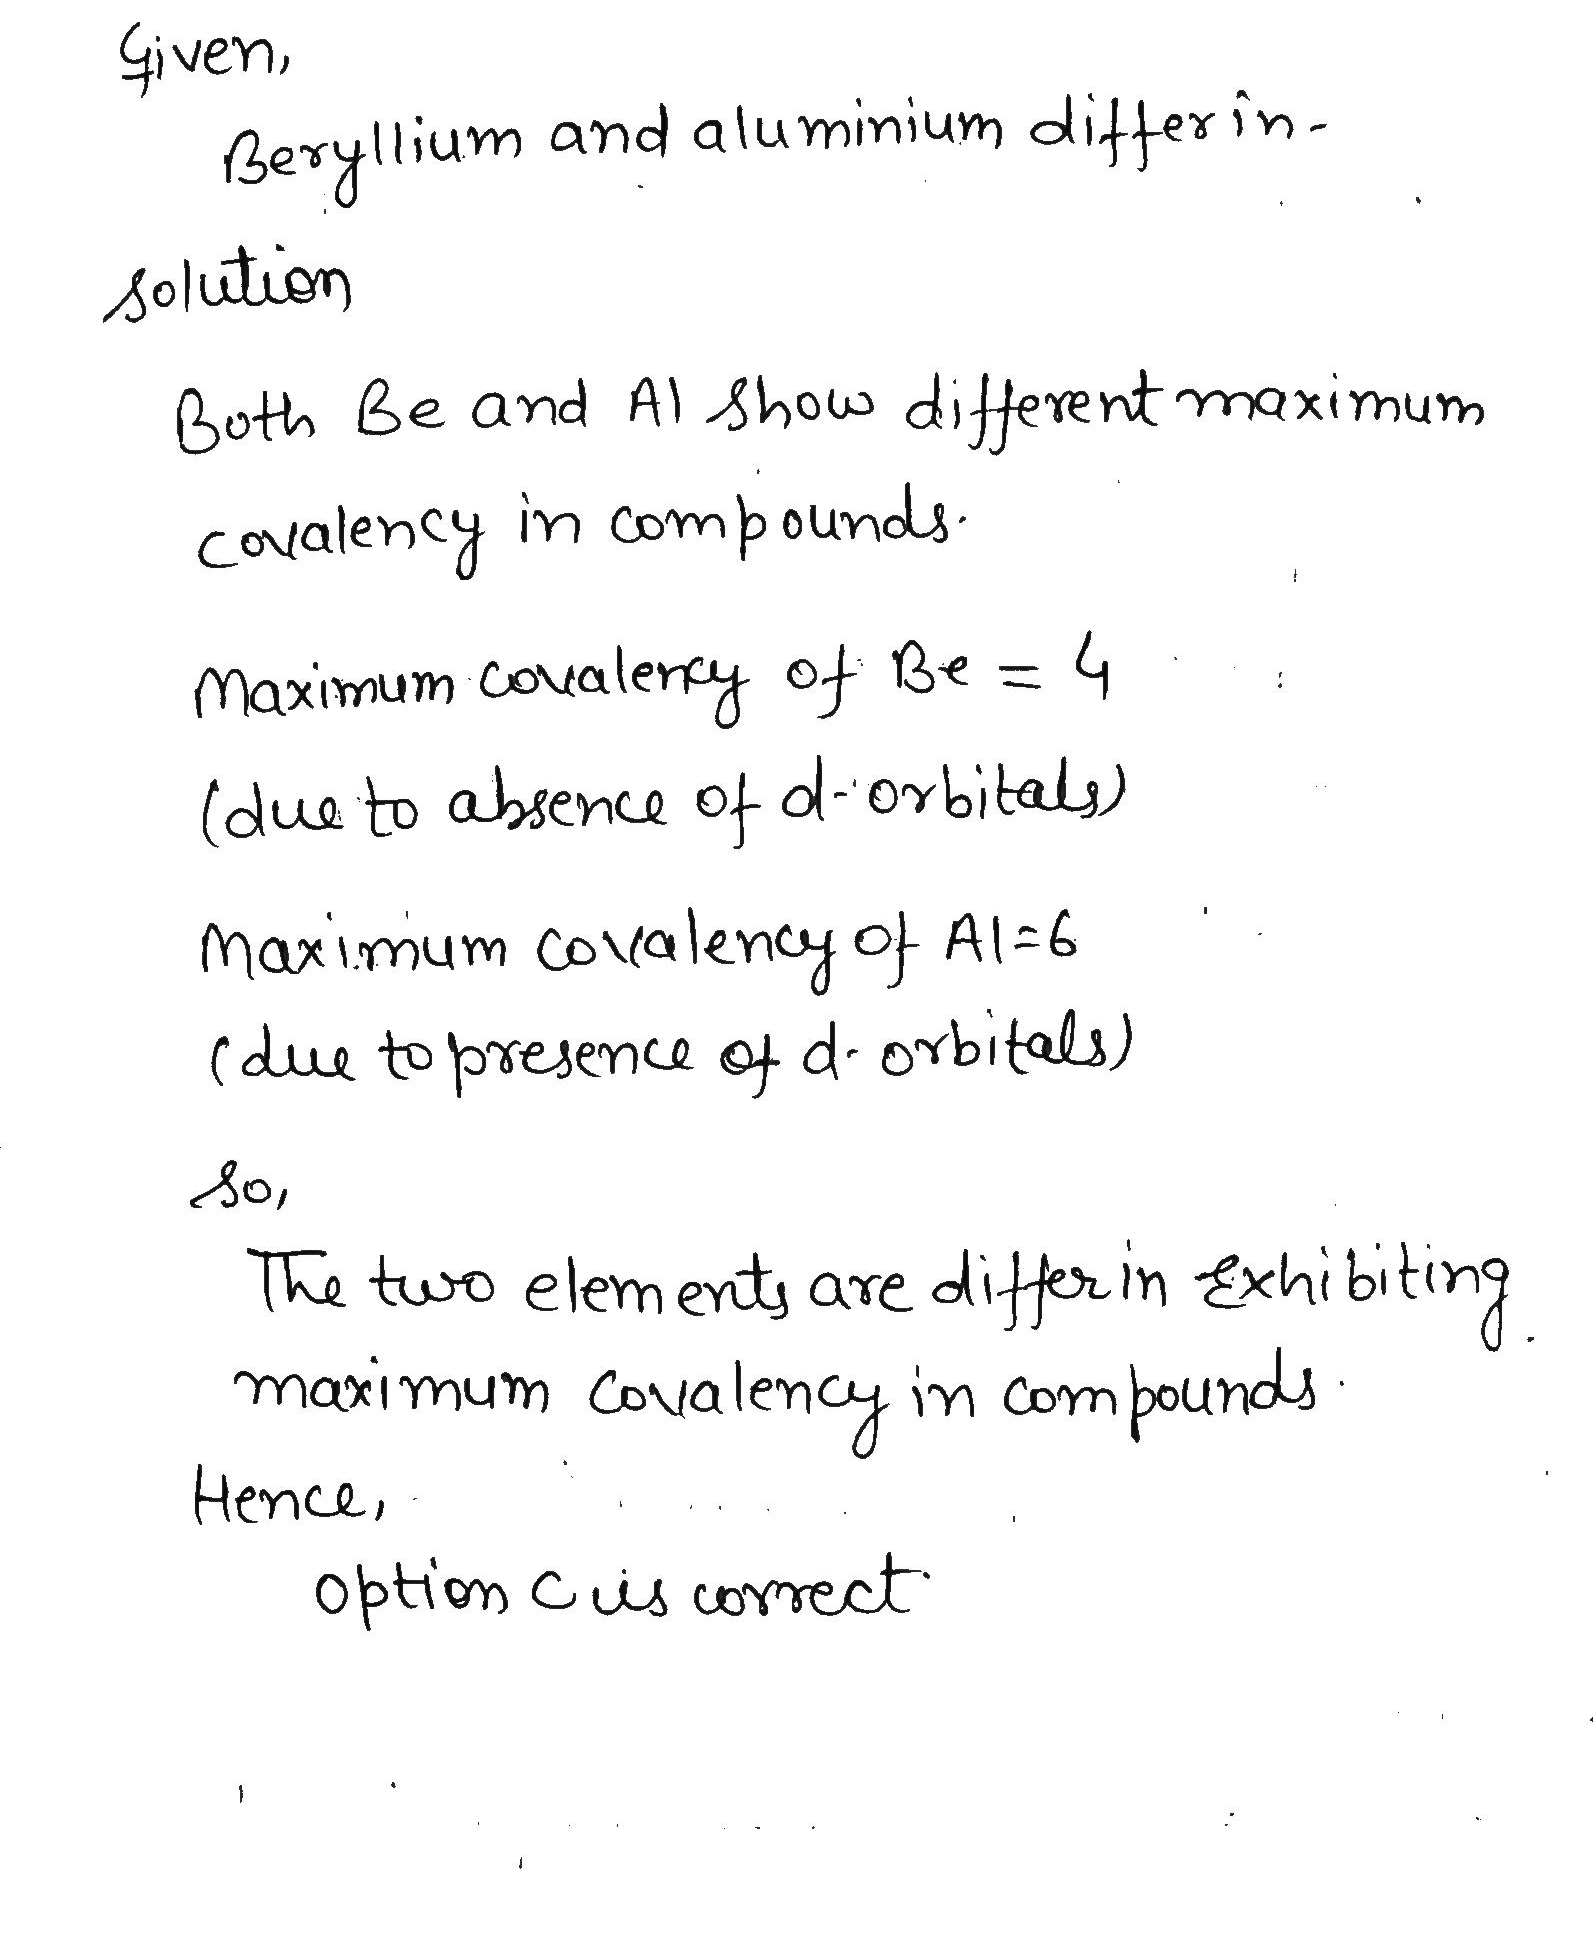 Given,
Beryllium and aluminium differ in-
solution
Both Be and Al show different maximum
covalency in compounds.
Maximum covalency of Be = 4
(due to absence of d-orbitals)
Maximum covalency of Al=6
(due to presence of d-orbitals)
so,
The two elements are differ in Exhibiting
maximum covalency in compounds.
Hence,
option C is correct